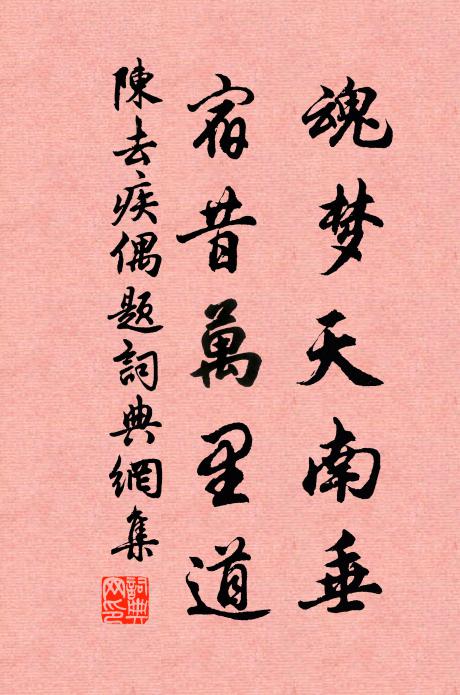 魂梦天南垂
宿昔萬里道
陳去疾偶題詞典網集
詞典網印